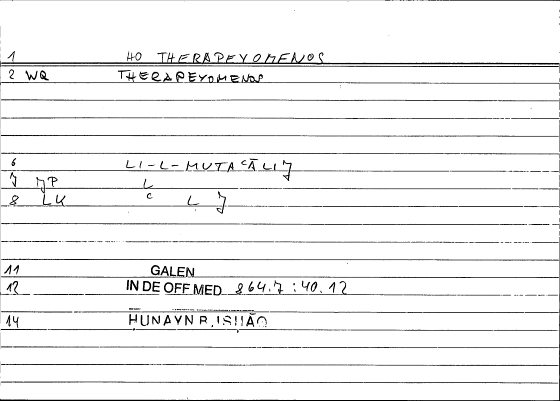 1 HO THERAPEYOMENOS
2 WQ THERAPEYOMENOS
6 LI-L-MUTAʿĀLIJ
7 JP L
8 LK C L J
11 GALEN
12 IN DE OFF MED 864.7 : 40.12
14 ḤUNAYN B. ISḤĀQ